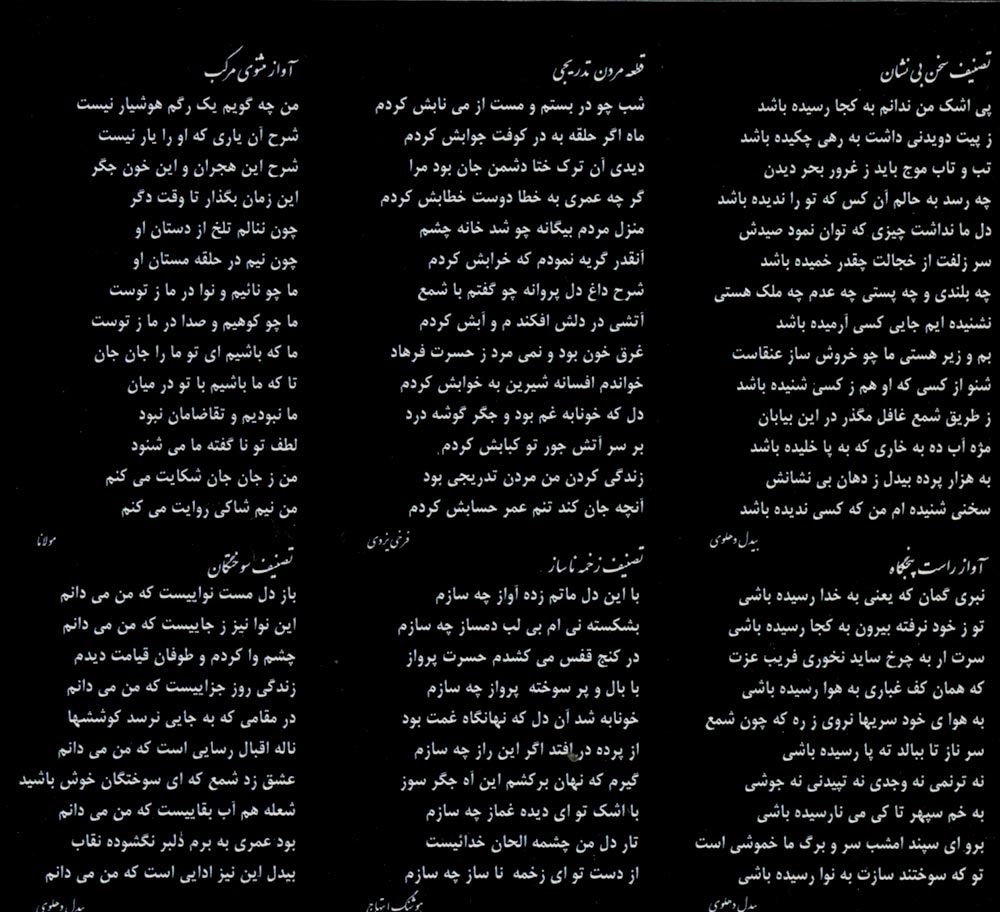 تصنیف سخن بی نشان
پی اشک من ندانم به کجا رسیده باشد
ز پیت دویدنی داشت به رهی چکیده باشد
تب و تاب موج باید ز غرور بحر دیدن
چه رسد به حالم آن کس که تو را ندیده باشد
دل ما نداشت چیزی که توان نمود صیدش
سر زلفت از خجالت چقدر خمیده باشد
چه بلندی و چه پستی چه عدم چه ملک هستی
نشنیده ایم جایی کسی آرمیده باشد
بم و زیر هستی ما چو خروش ساز عنقاست
شنو از کسی که او هم ز کسی شنیده باشد
ز طریق شمع غافل مگذر در این بیابان
مژه آب ده به خاری که به پا خلیده باشد
به هزار پرده بیدل ز دهان بی نشانش
سخنی شنیده ام من که کسی ندیده باشد
بیدل دهلوی
آواز راست پنجگاه
نبری گمان که یعنی به خدا رسیده باشی
تو ز خود نرفته بیرون به کجا رسیده باشی
سرت ار به چرخ ساید نخوری فریب عزت
که همان کف غباری به هوا رسیده باشی
به هوا ی خود سریها نروی ز ره که چون شمع
سر ناز تا ببالد ته پا رسیده باشی
نه ترنمی نه وجدی نه تپیدنی نه جوشی
به خم سپهر تا کی می نارسیده باشی
برو ای سپند امشب سر و برگ ما خموشی است
تو که سوختند سازت به نوا رسیده باشی
بیدل دهلوی
قطعه مردن تدریجی
شب چو در بستم و مست از می نابش کردم
ماه اگر حلقه به در کوفت جوابش کردم
دیدی آن ترک ختا دشمن جان بود مرا
گر چه عمری به خطا دوست خطابش کردم
منزل مردم بیگانه چو شد خانه چشم
آنقدر گریه نمودم که خرابش کردم
شرح داغ دل پروانه چو گفتم با شمع
آتشی در دلش افکند م و آبش کردم
غرق خون بود و نمی مرد ز حسرت فرهاد
خواندم افسانه شیرین به خوابش کردم
دل که خونابه غم بود و جگر گوشه درد
بر سر آتش جور تو کبابش کردم
زندگی کردن من مردن تدریجی بود
آنچه جان کند تنم عمر حسابش کردم
فرخی یزدی
تصنیف زخمه ناساز
با این دل ماتم زده آواز چه سازم
بشکسته نی ام بی لب دمساز چه سازم
در کنج قفس می کشدم حسرت پرواز
با بال و پر سوخته پرواز چه سازم
خونابه شد آن دل که نهانگاه غمت بود
از پرده در افتد اگر این راز چه سازم
گیرم که نهان برکشم این آه جگر سوز
با اشک تو ای دیده غماز چه سازم
تار دل من چشمه الحان خدائیست
از دست تو ای زخمه نا ساز چه سازم
هوشنگ ابتهاج
آواز مثنوی مرکب
من چه گویم یک رگم هوشیار نیست
شرح آن یاری که او را یار نیست
شرح این هجران و این خون جگر
این زمان بگذار تا وقت دگر
چون ننالم تلخ از دستان او
چون نیم در حلقه مستان او
ما چو نائیم و نوا در ما ز توست
ما چو کوهیم و صدا در ما ز توست
ما که باشیم ای تو ما را جان جان
تا که ما باشیم با تو در میان
ما نبودیم و تقاضامان نبود
لطف تو نا گفته ما می شنود
من ز جان جان شکایت می کنم
من نیم شاکی روایت می کنم
مولانا
تصنیف سوختگان
باز دل مست نواییست که من می دانم
این نوا نیز ز جاییست که من می دانم
چشم وا کردم و طوفان قیامت دیدم
زندگی روز جزاییست که من می دانم
در مقامی که به جایی نرسد کوششها
ناله اقبال رسایی است که من می دانم
عشق زد شمع که ای سوختگان خوش باشید
شعله هم آب بقاییست که من می دانم
بود عمری به برم دلبر نگشوده نقاب
بیدل این نیز ادایی است که من می دانم
بیدل دهلوی